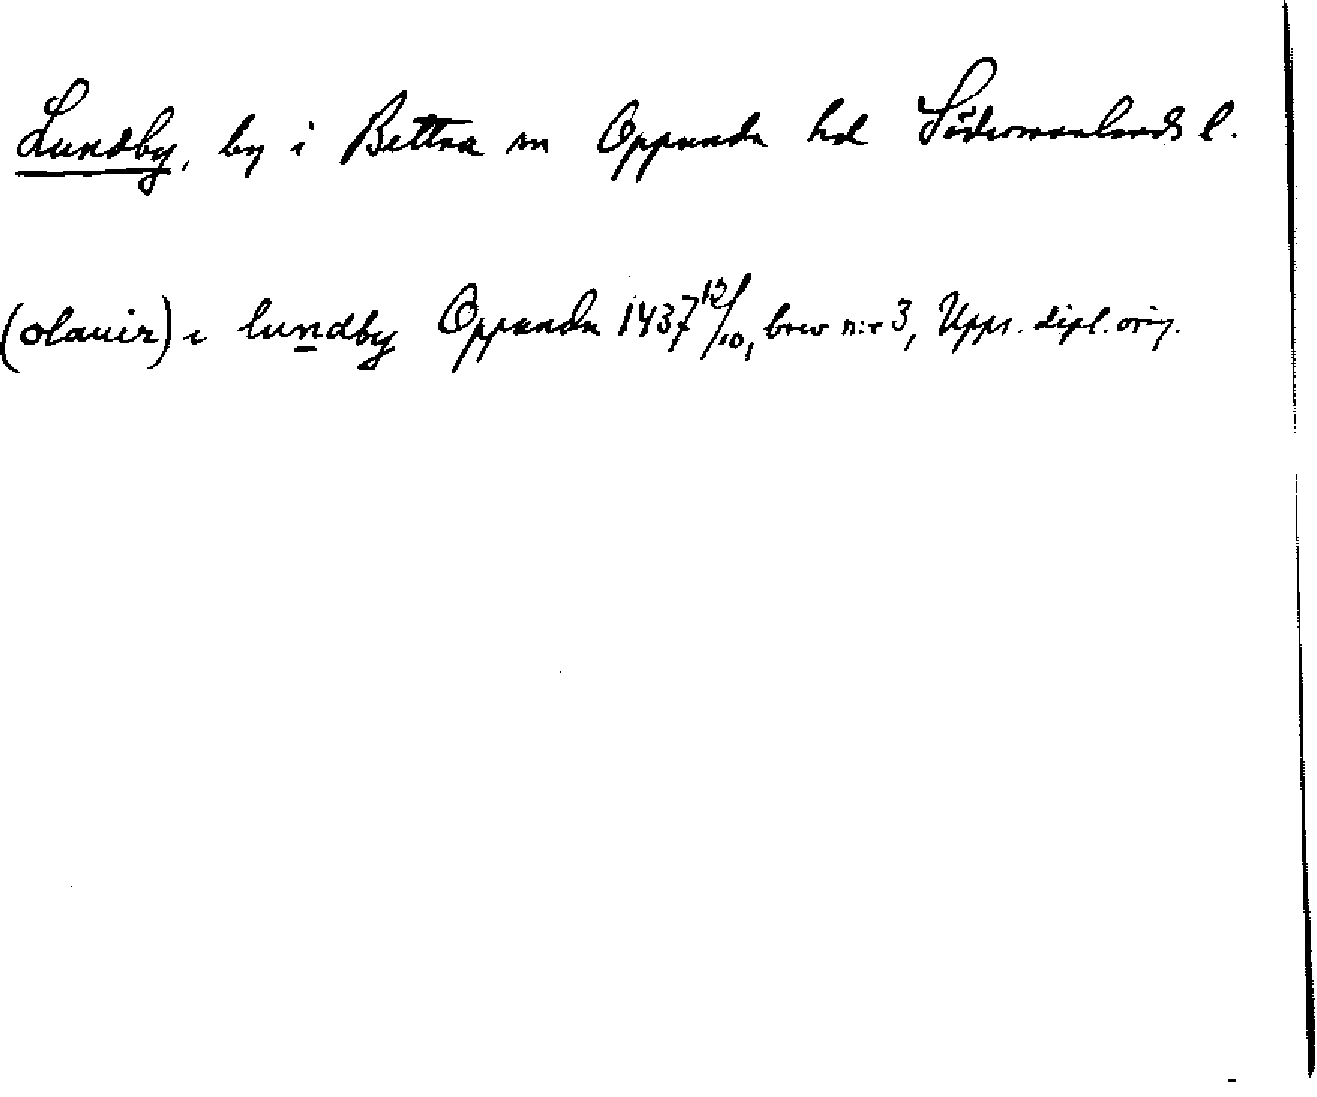 Lundby, by i Bettna sn Oppunda hd Södermanlands l.
(olauir) i lundby Oppunda 1437 13/10, brev n:r 3, Upps. dipl. orig.